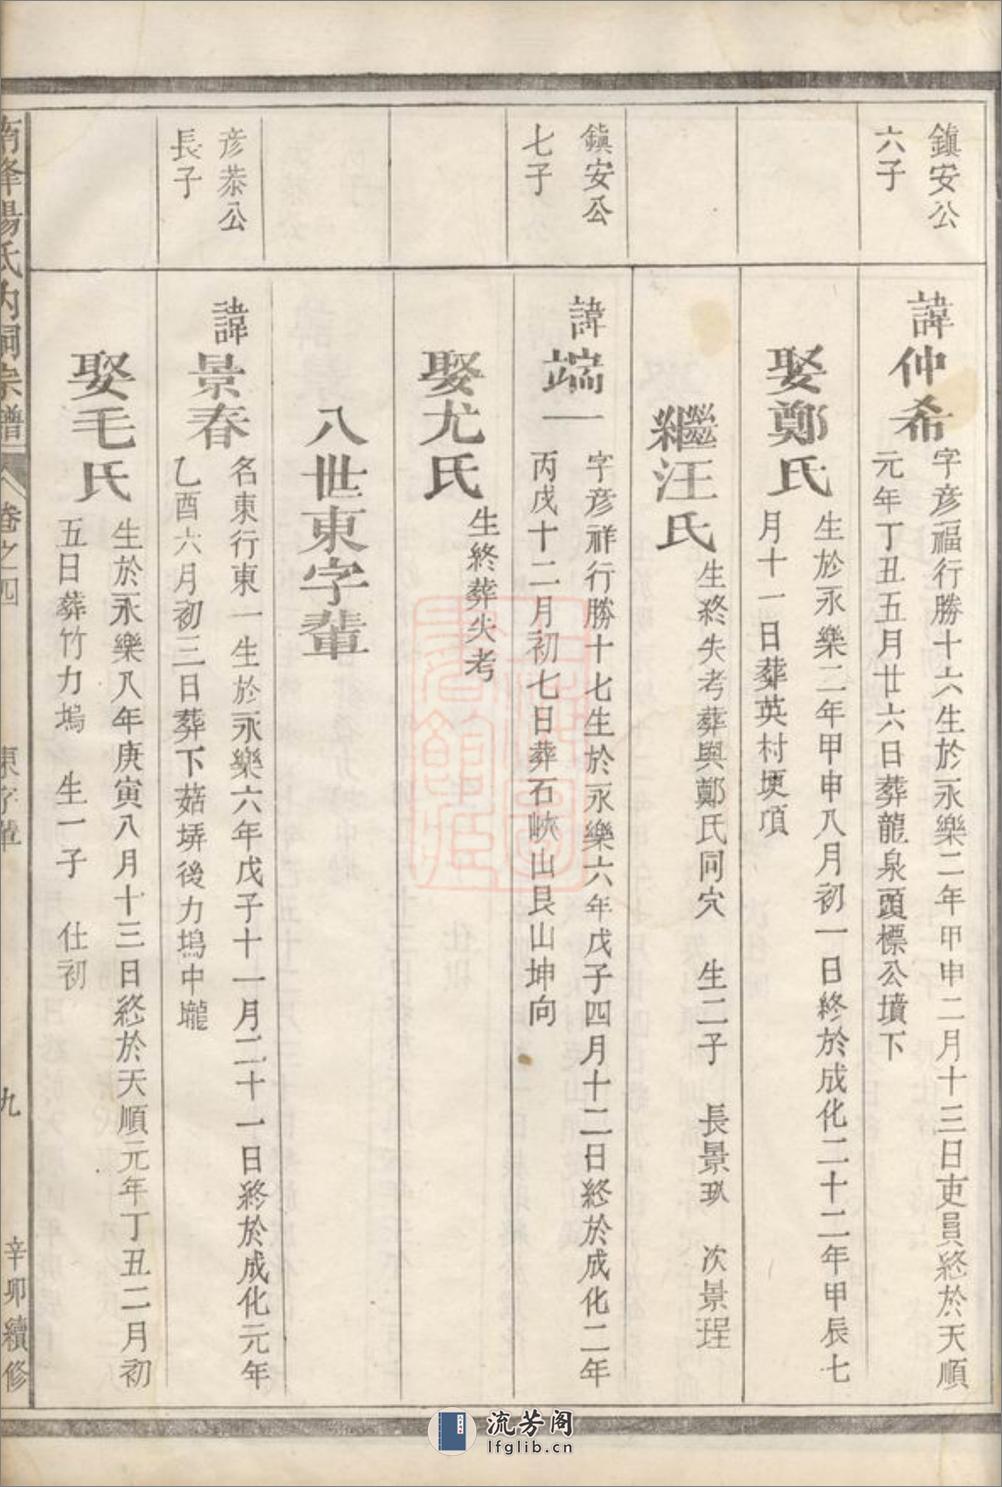 鎮安公
六子
諱仲希
字彦福行勝十六生於永樂二年甲申二月十三日吏員終於天順
元年丁丑五月廿六日葬龍泉頭標公墳下
娶鄭氏
生於永樂二年甲申八月初一日終於成化二十二年甲辰七
月十一日葬英村塻項
繼汪氏
生終失考葬與鄭氏同穴 生二子 長景玖 次景珵
鎮安公
七子
諱端一
字彦祥行勝十七生於永樂六年戊子四月十二日終於成化二年
丙戌十二月初七日葬石峽山艮山坤向
娶尤氏
生終葬失考
八世東字輩
彦恭公
長子
諱景春
名東行東一生於永樂六年戊子十一月二十一日終於成化元年
乙酉六月初三日葬下菇塝後力塢中壠
娶毛氏
生於永樂八年庚寅八月十三日終於天順元年丁丑二月初
五日葬竹力塢 生一子 仕初
南峰楊氏內祠宗譜 卷之四 東字輩 九 辛卯續修
流芳阁
lfglib.cn